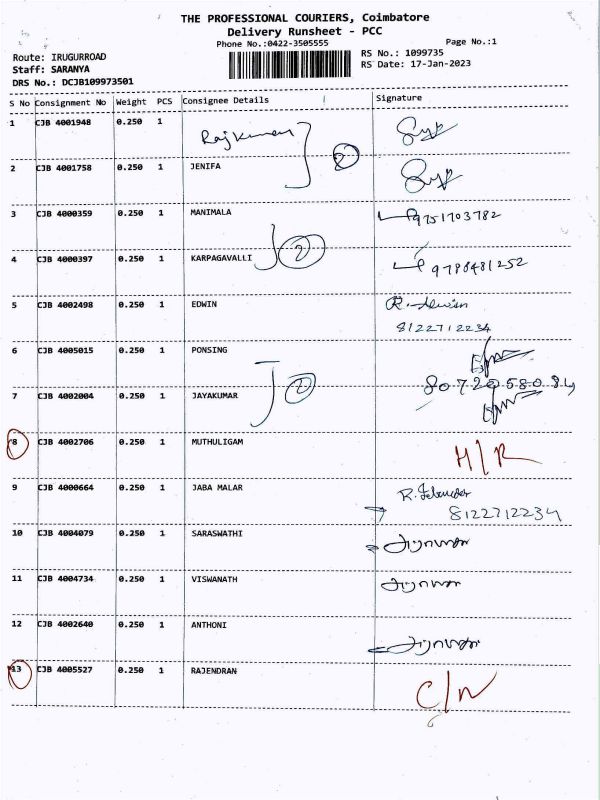 THE PROFESSIONAL COURIERS, Coimbatore
Delivery Runsheet - PCC
Phone No.:0422-3505555
Page No.:1
Route: IRUGURROAD
RS No.: 1099735
Staff: SARANYA
RS Date: 17-Jan-2023
DRS No.: DCJB109973501
S No Consignment No Weight PCS Consignee Details Signature
1 CJB 4001948 0.250 1 Rajkumar
2 CJB 4001758 0.250 1 JENIFA 2
3 CJB 4000359 0.250 1 MANIMALA 9751703782
4 CJB 4000397 0.250 1 KARPAGAVALLI 2 9786481252
5 CJB 4002498 0.250 1 EDWIN
8122712234
6 CJB 4005015 0.250 1 PONSING
7 CJB 4002004 0.250 1 JAYAKUMAR 2
8 CJB 4002706 0.250 1 MUTHULIGAM
9 CJB 4000664 0.250 1 JABA MALAR
8122712234
10 CJB 4004079 0.250 1 SARASWATHI
11 CJB 4004734 0.250 1 VISWANATH
12 CJB 4002640 0.250 1 ANTHONI
13 CJB 4005527 0.250 1 RAJENDRAN C/N